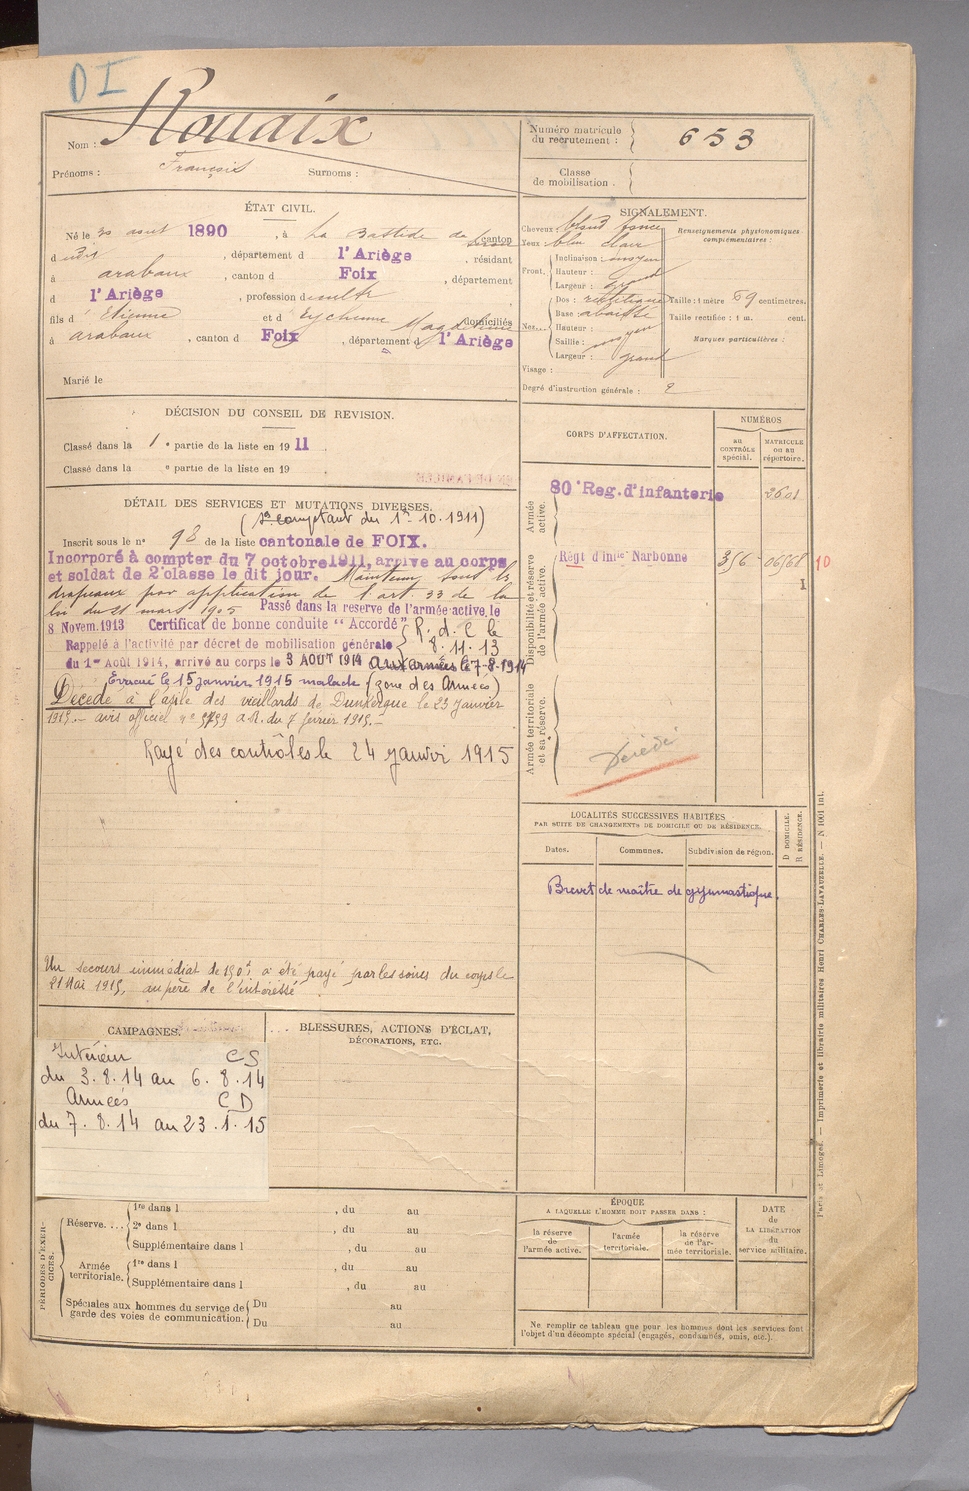 D I
Nom : Rouaix
Prénoms : François Surnoms :
Numéro matricule
du recrutement : 653
Classe
de mobilisation .
ÉTAT CIVIL.
Né le août 1890 , à La Bastide de canton
dudit , département d l'Ariège , résidant
à arabaux , canton d Foix , département
d l'Ariège , profession de culte
fils d' Etienne et d' Eychenne Magdeleine domiciliés
à arabaux , canton d Foix , département d l'Ariège
Marié le
SIGNALEMENT.
Cheveux blond foncé
Yeux : bleu clair
Front. Inclinaison : moyen
Hauteur : grand
Largeur :
Nez... Dos : rectiligne
Base : abaissée
Hauteur :
Saillie : moyen
Largeur : grand
Visage :
Renseignements physionomiques
complémentaires :
Taille : 1 mètre 69 centimètres.
Taille rectifiée : 1 m. cent.
Marques particulières :
Degré d'instruction générale : 2
DÉCISION DU CONSEIL DE REVISION.
Classé dans la 1 e partie de la liste en 19 11
Classé dans la e partie de la liste en 19 .
DÉTAIL DES SERVICES ET MUTATIONS DIVERSES.
( comptant du 1er 10.1911)
Inscrit sous le n° 98 de la liste cantonale de FOIX.
Incorporé à compter du 7 octobre 1911, arrive au corps
et soldat de 2e classe le dit jour. Maintenu sous les
drapeaux par application de l'art 33 de la
loi du 21 mars 1905 Passé dans la reserve de l'armée active, le
8 Novem. 1913 Certificat de bonne conduite " Accordé" R. d. C le
Rappelé à l'activité par décret de mobilisation générale 8.11.13
du 1er Août 1914, arrivé au corps le 3 AOUT 1914 aux armées le 7-8-1914
Evacué le 15 janvier 1915 malade (zone des Armées)
Décédé à l'asile des vieillards de Dunkerque le 23 Janvier
1915 - avis officiel n° a.R. du 7 février 1915.-
Rayé des contrôles le 24 janvier 1915
Un secours immédiat de 150f, a été payé par les soins du corps le
21 Mai 1915, au père de l'intéressé
CORPS D'AFFECTATION.
NUMÉROS
au
CONTRÔLE
spécial.
MATRICULE
ou au
répertoire.
Armée
active.
80e Reg. d'infanterie 3601
Disponibilité et réserve
de l'armée active.
Régt d'Infie Narbonne 356 06568 10
I
Armée territoriale
et sa réserve.
Décédé
LOCALITÉS SUCCESSIVES HABITÉES
PAR SUITE DE CHANGEMENTS DE DOMICILE OU DE RÉSIDENCE.
Dates. Communes. Subdivision de région. D DOMICILE. R RÉSIDENCE.
Brevet de maître de gymnastique.
CAMPAGNES.
Intérieur CS
du 3.8.14 au 6.8.14
Armées CD
du 7.8.14 au 23.1.15
BLESSURES, ACTIONS D'ÉCLAT,
DÉCORATIONS, ETC.
PÉRIODES D'EXER-
CICES.
Réserve. ... 1re dans l , du au
2e dans l , du au
Supplémentaire dans l , du au
Armée
territoriale. 1re dans l , du au
Supplémentaire dans l , du au
Spéciales aux hommes du service de
garde des voies de communication. Du au
Du au
ÉPOQUE
A LAQUELLE L'HOMME DOIT PASSER DANS :
la réserve
de
l'armée active.
l'armée
territoriale.
la réserve
de l'ar-
mée territoriale.
DATE
de
LA LIBÉRATION
du
service militaire.
Ne remplir ce tableau que pour les hommes dont les services font
l'objet d'un décompte spécial (engagés, condamnés, omis, etc.).
Paris et Limoges. — Imprimerie et librairie militaires Henri CHARLES-LAVAUZELLE. — N 1001 int.